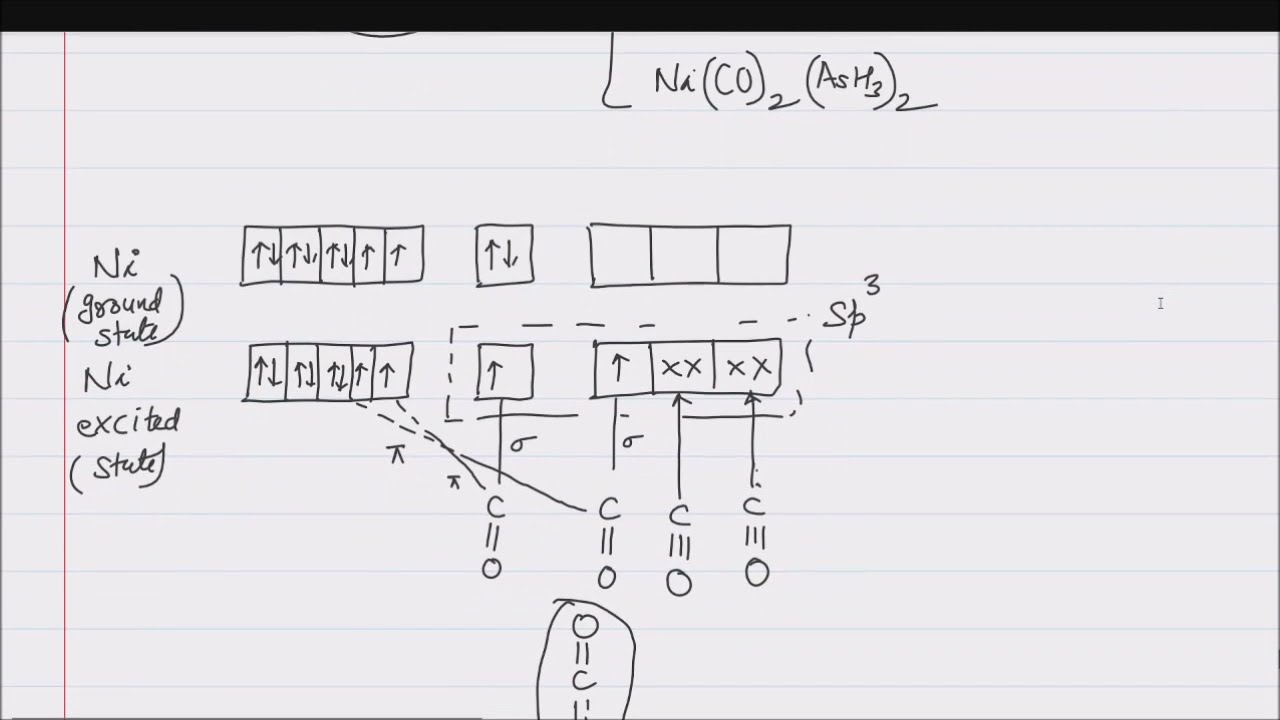 Ni(CO)₂(AsH₃)₂
Ni
(ground
state)
↑↓ ↑↓ ↑↓ ↑ ↑ ↑↓
sp³
Ni
excited
(state)
↑↓ ↑↓ ↑↓ ↑ ↑ ↑ ↑ ×× ××
π π σ σ
C C C C
|| || ||| |||
O O O O
O
||
C